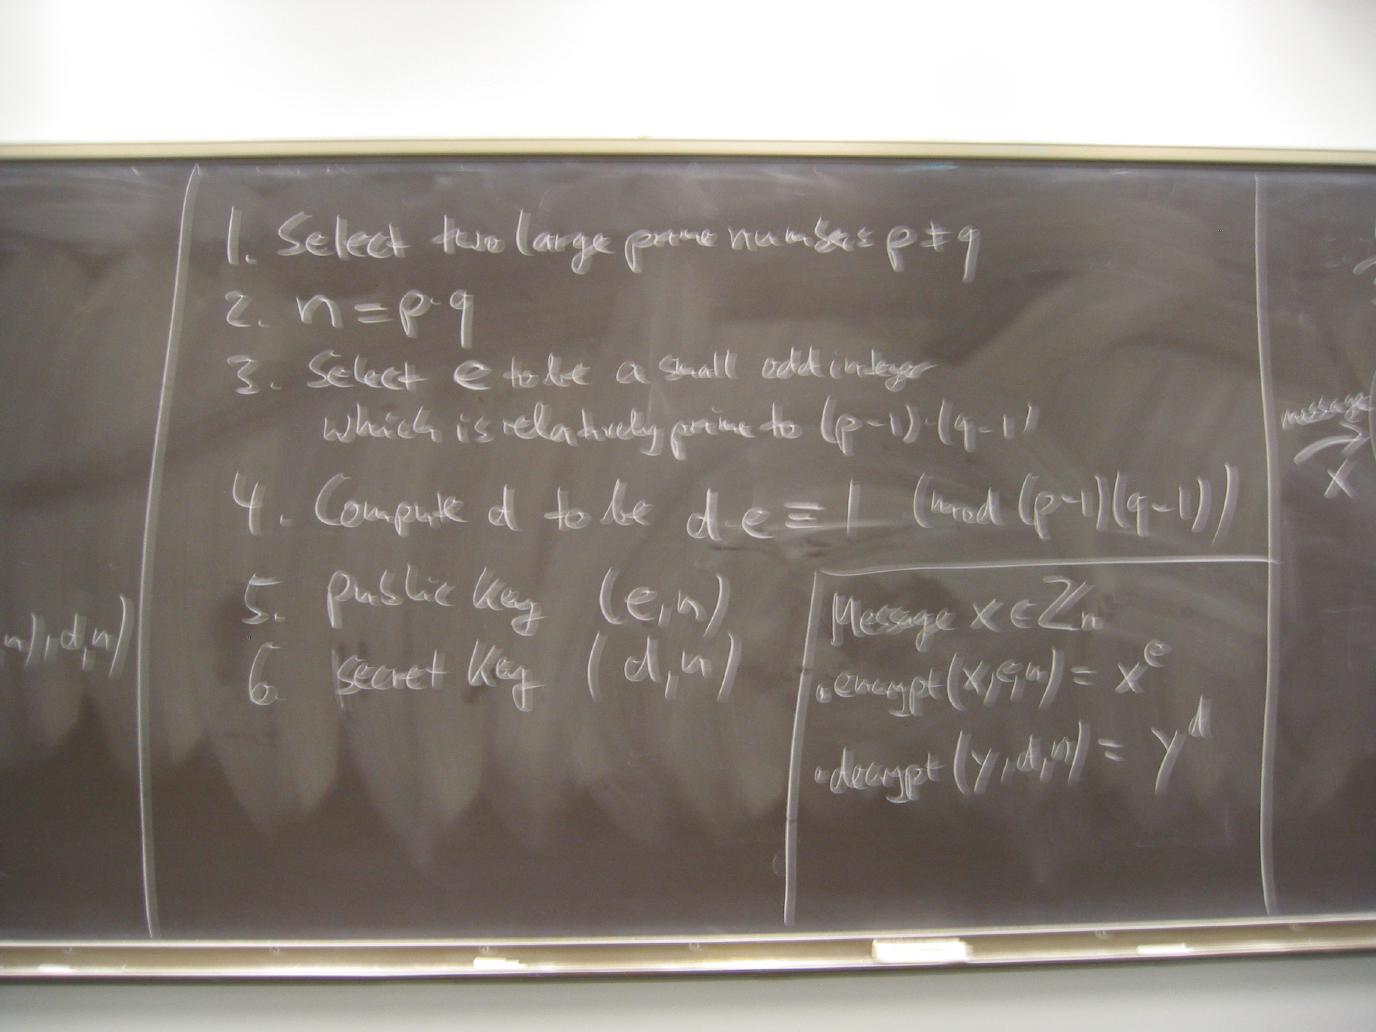 1. Select two large prime numbers p ≠ q
2. n = p·q
3. Select e to be a small odd integer
which is relatively prime to (p-1)·(q-1)
4. Compute d to be d·e ≡ 1 (mod (p-1)(q-1))
5. public key (e,n)
6. secret key (d,n)
Message x ∈ ℤₙ
•encrypt(x,e,n) = xᵉ
•decrypt(y,d,n) = yᵈ
n),d,n)
message
x